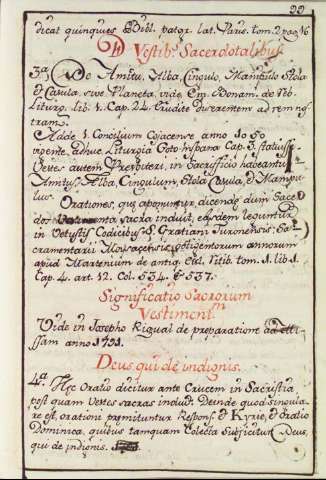 99
dicat quinquies Bibl. patr. lat. Paris. tom. 2 pag 16
Vestib⁹ Sacerdotalibus
3ª De Amitu, Alba, Cingulo, Manipulo Stola
& Casula, sive Planeta, vide Em. Bonam. de reb.
Liturg. lib. 1. Cap. 24. erudite disserentem ad rem nos
tram.
Adde 1. Concilium Cojacense anno 1050
vigente adhuc Liturgia Goto-hispana Cap. 3. statuisse
Vestes autem Presbiteri, in Sacrificio habeantur
Amitus, Alba, Cingulum, Stola Casula, & Manipu
lus.
Orationes, quæ apponuntur, dicendæ dum Sace
dos sacra induit, eædem leguntur
in Vetustis Codicibus S. Gratiani Turonensis: Sa
cramentarii Moisacensis, octigentorum annorum
apud Martenium de antiq. Eal. ritib. tom. 1. lib 1.
Cap. 4. art. 12. Col. 534. & 537.
Significatio Sacrorum
Vestiment.
Vide in Josepho Rigual de preparatione ad Mi
ssam anno 1791.
Deus qui de indignis.
4ª Hæc Oratio dicitur ante Crucem in Sacristia
post quam Vestes sacras induit. Deinde quod singula
re est, orationi premituntur Respons. & Kyrie, & Oratio
Dominica, quibus tamquam Colecta Subjicitur Deus,
qui de indignis.